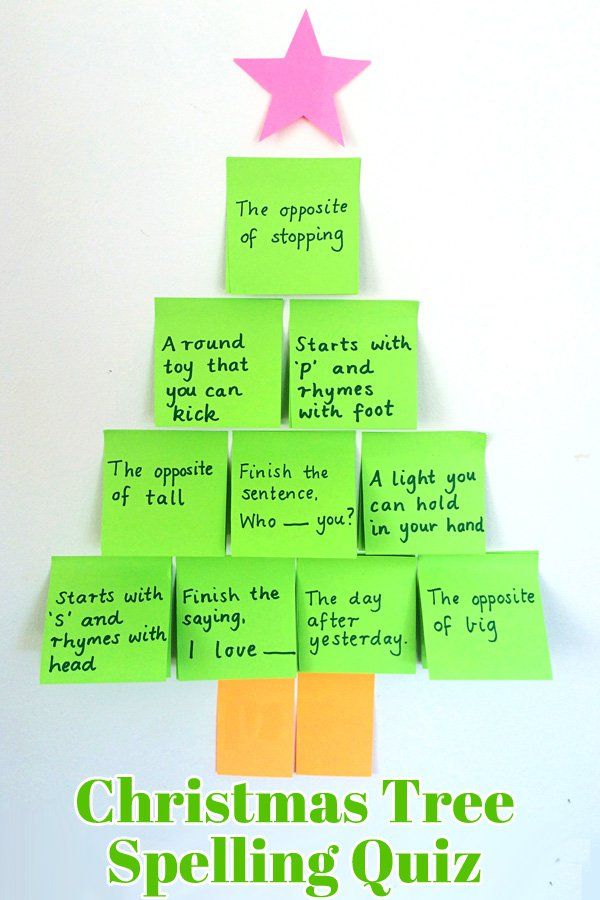 The opposite
of stopping
A round
toy that
you can
kick
Starts with
'p' and
rhymes
with foot
The opposite
of tall
Finish the
sentence,
Who __ you?
A light you
can hold
in your hand
Starts with
's' and
rhymes with
head
Finish the
saying,
I love __
The day
after
yesterday.
The opposite
of big
Christmas Tree
Spelling Quiz